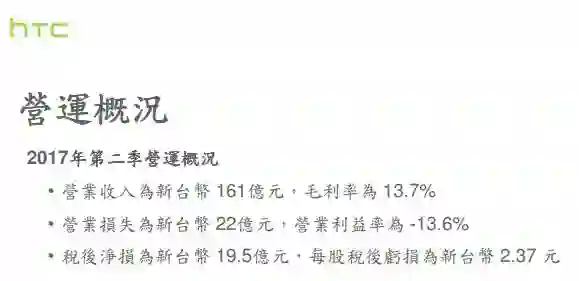 hTC
營運概況
2017年第二季營運概況
• 營業收入為新台幣 161億元，毛利率為 13.7%
• 營業損失為新台幣 22億元，營業利益率為 -13.6%
• 稅後淨損為新台幣 19.5億元，每股稅後虧損為新台幣 2.37 元